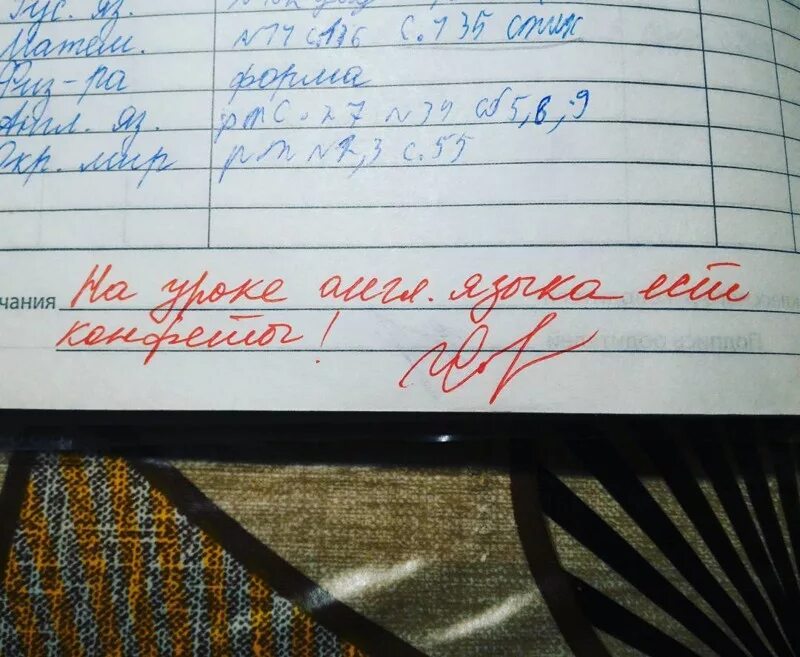 Рус. яз.
Матем. N74 с.136 с.135 стих
Физ-ра форма
Англ. яз. рт с.27 N34 сб 5,6,9
Окр. мир рт N2,3 с.55
чания На уроке англ. языка ест
конфеты!
Подпись родителей